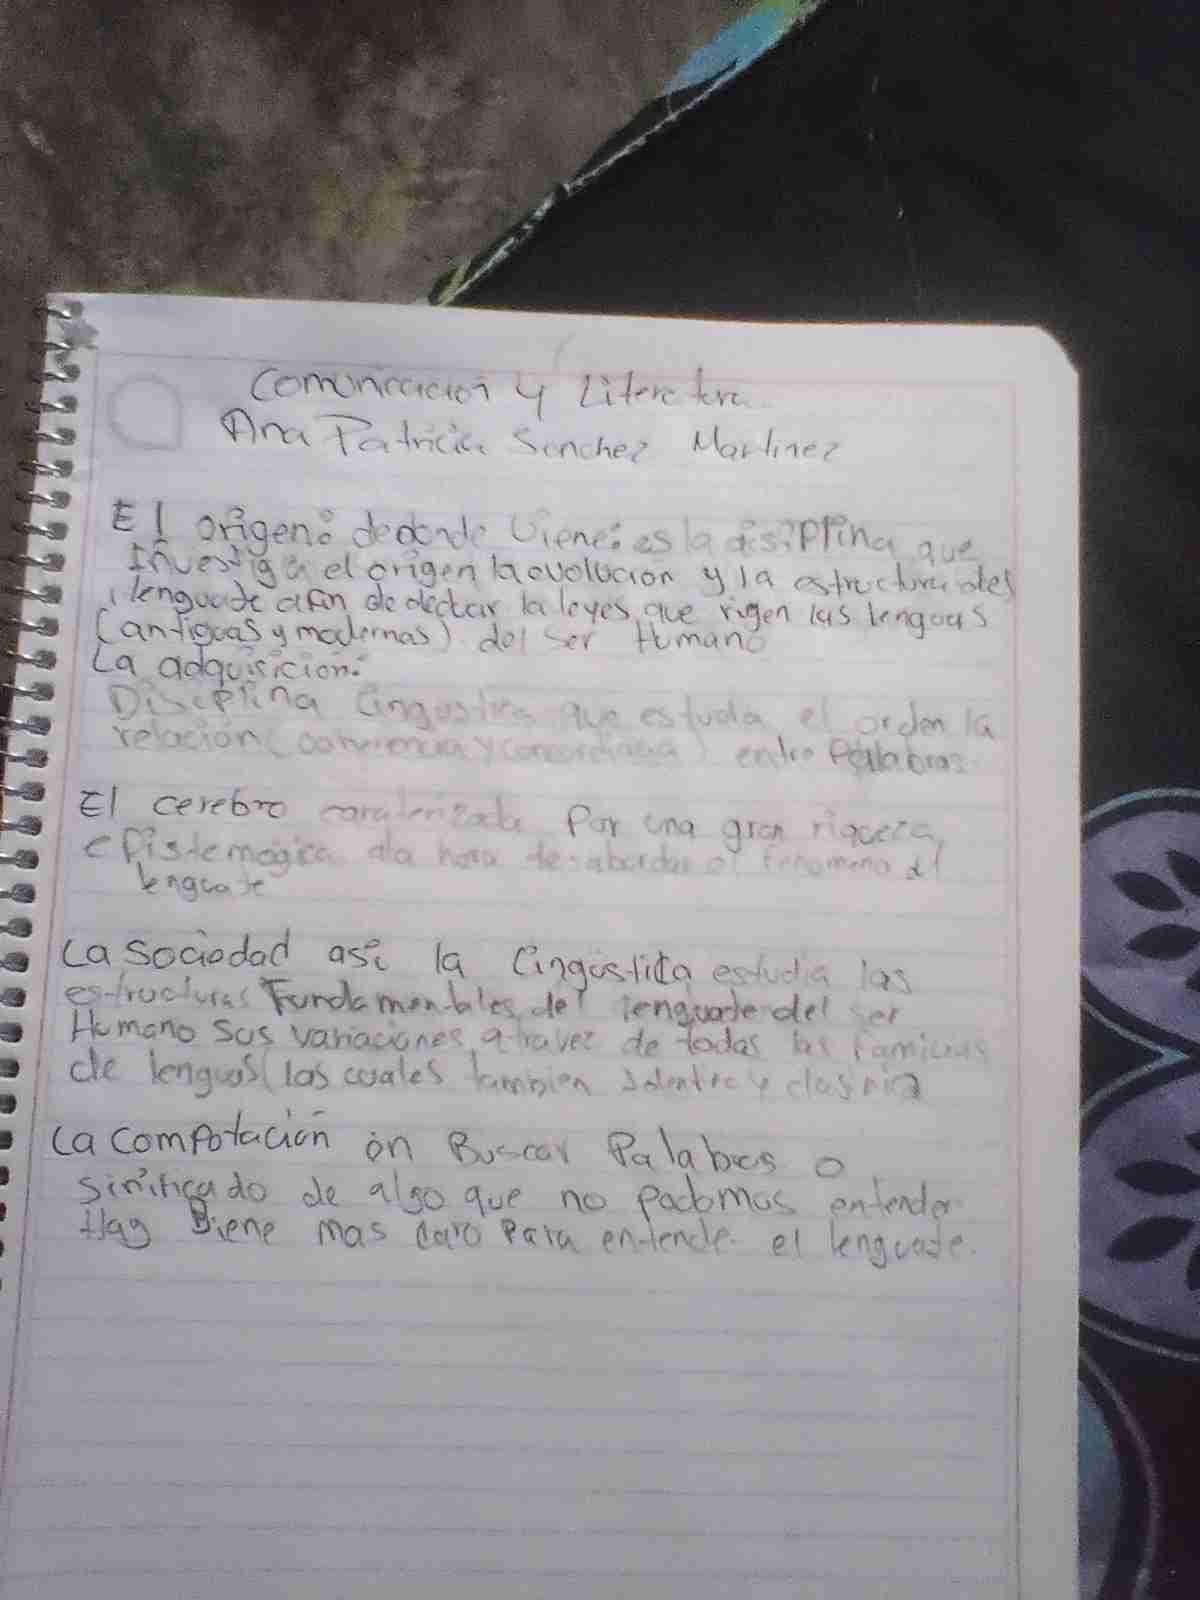 Comunicación y Literatura
Ana Patricia Sanchez Martinez
El origen: dedonde viene: es la disiplina que
Investiga el origen la evolucion y la estructura del
lenguate afin de dectar la leyes que rigen las lenguas
(antiguas y modernas) del ser Humano
La adquisicion:
Disciplina lingustica que estuda el orden la
relacion (coherencia y concordancia) entre Palabras
El cerebro caraterizada Por una gran riqueza
epistemogica ala hora de abordar el fenomeno del
lenguate
La sociedad asi la lingustica estudia las
estructuras Fundamentales del lenguate del ser
Humano sus variaciones atravez de todas las familias
de lenguas (las cuales tambien
La compotación on Buscar Palabras o
sinificado de algo que no podomos entender
Hay Biene mas claro Para entende el lenguate.